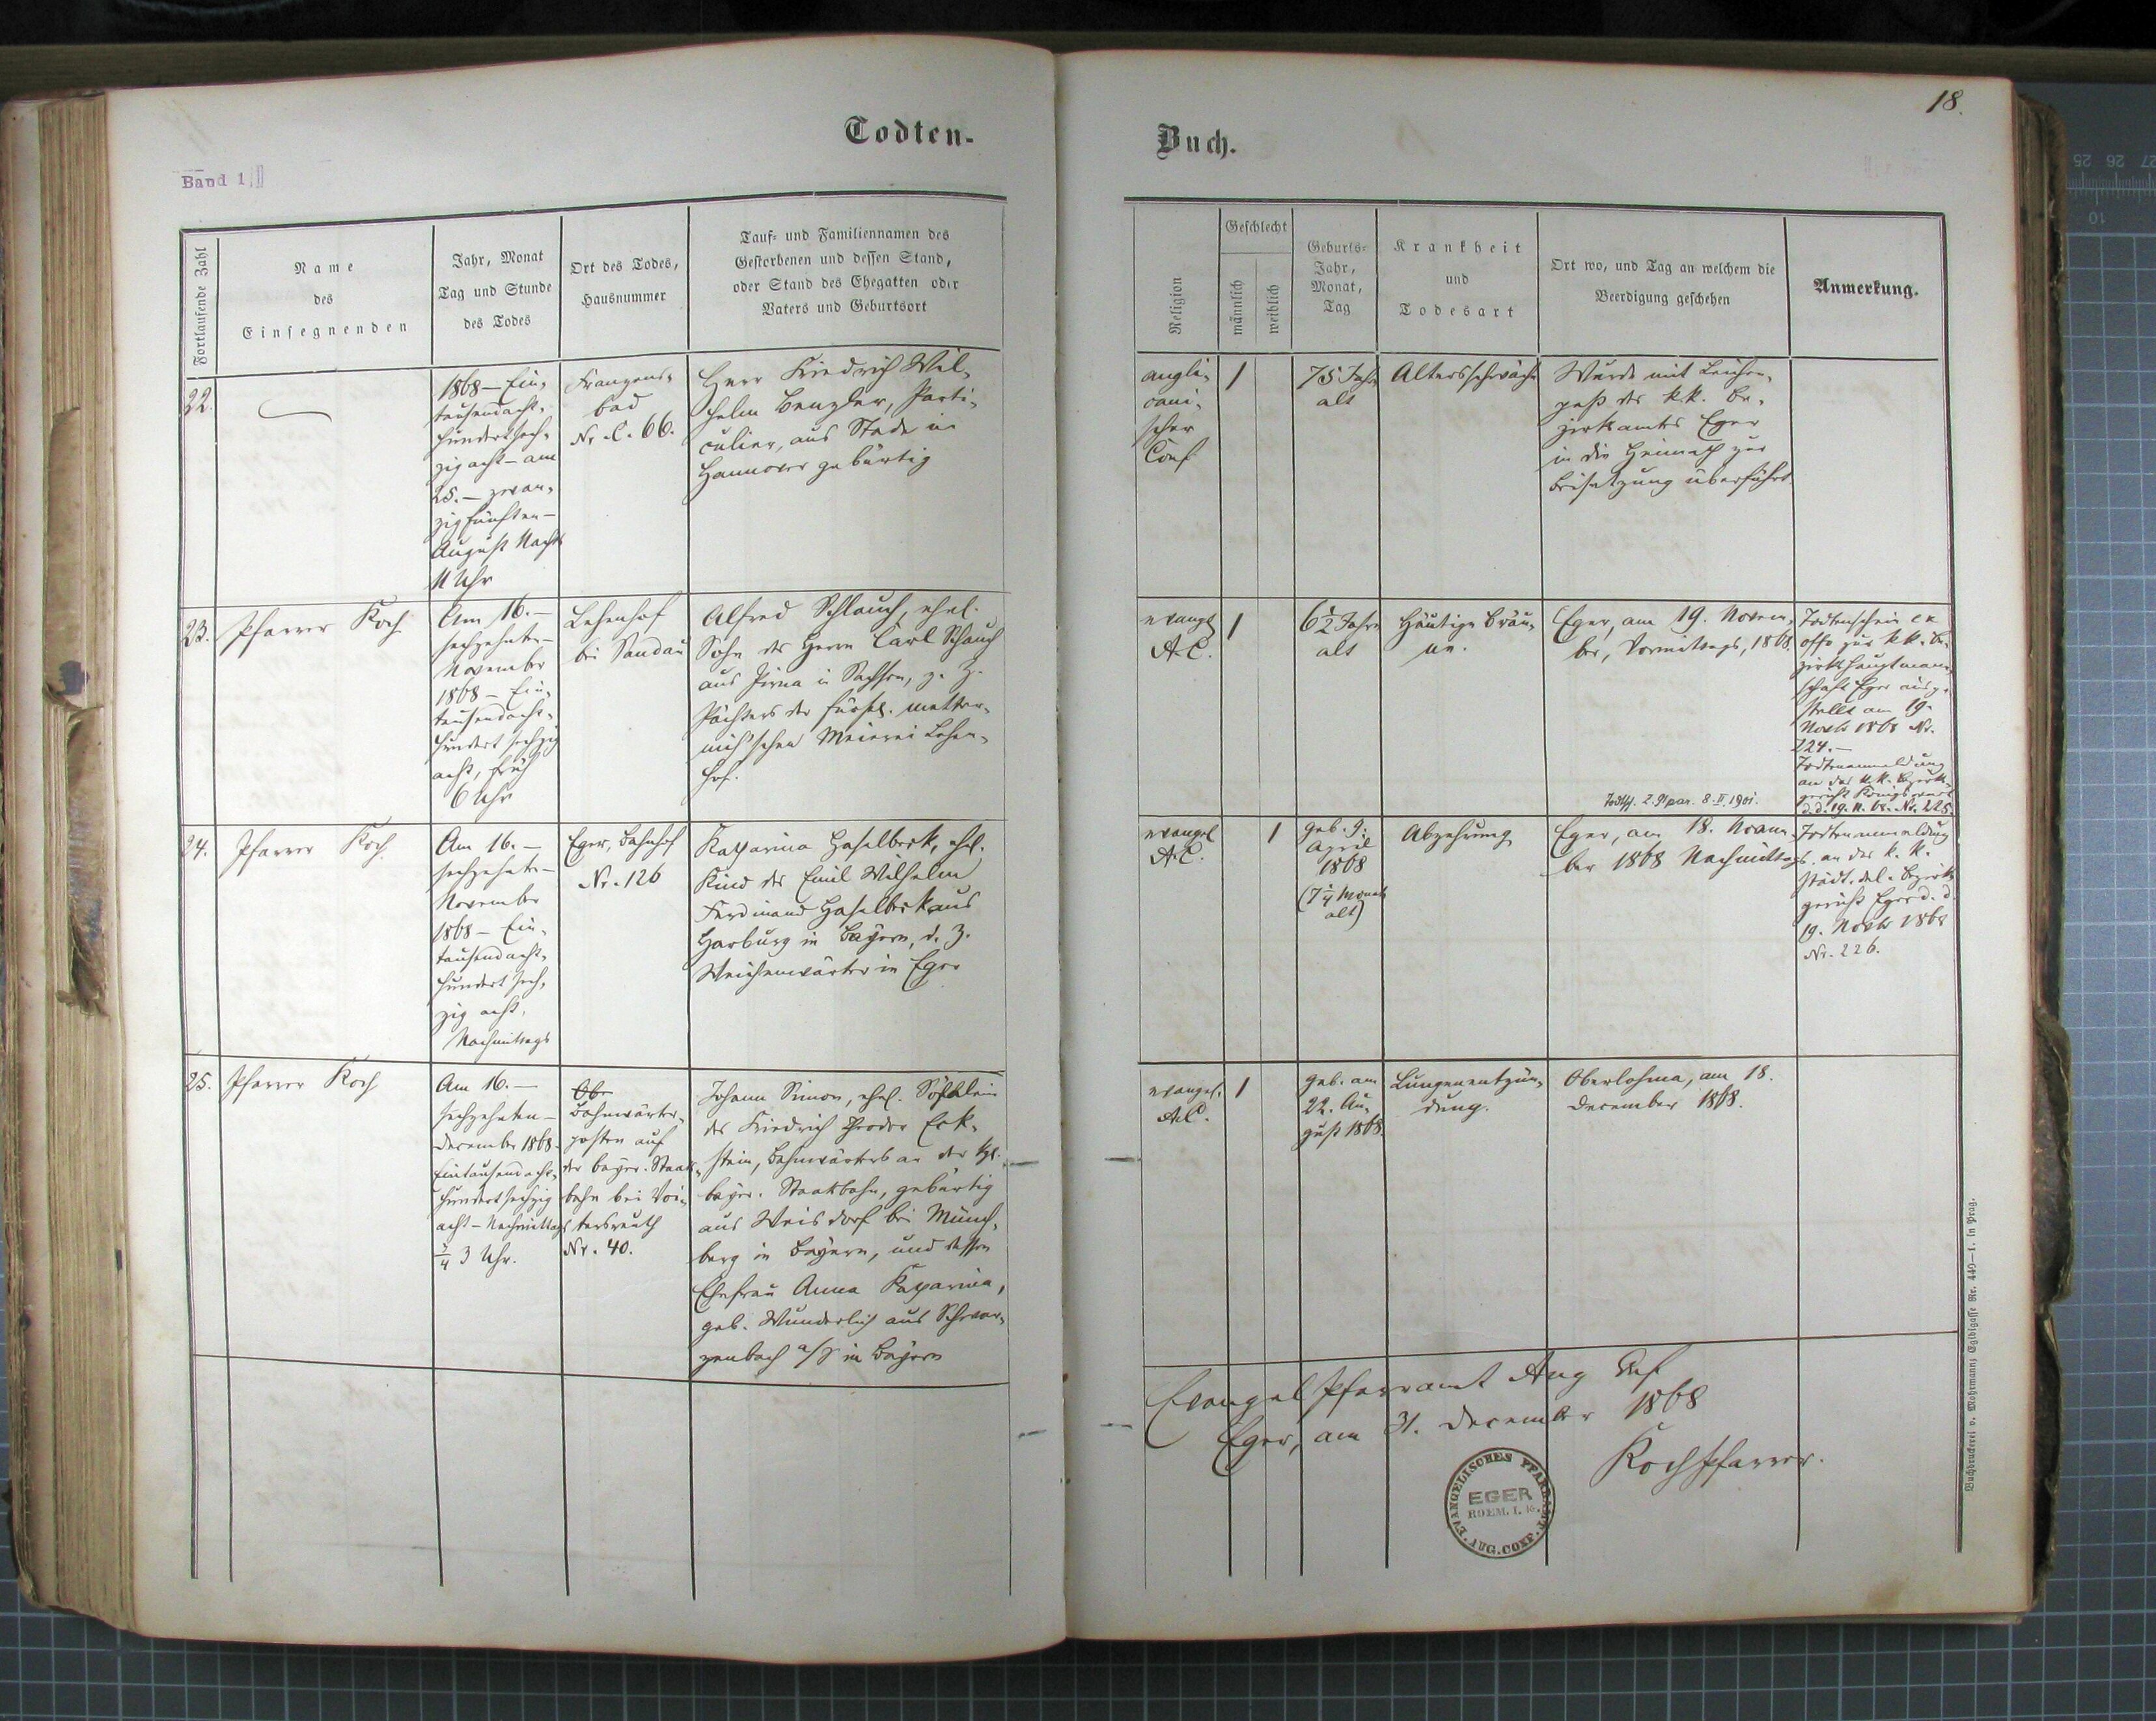 Todten-
Buch.
18.
Band 1/II
Fortlaufende Zahl
Name
des
Einsegnenden
Jahr, Monat
Tag und Stunde
des Todes
Ort des Todes,
Hausnummer
Tauf- und Familiennamen des
Gestorbenen und dessen Stand,
oder Stand des Ehegatten oder
Vaters und Geburtsort
Religion
Geschlecht
männlich
weiblich
Geburts-
Jahr,
Monat,
Tag
Krankheit
und
Todesart
Ort wo, und Tag an welchem die
Beerdigung geschehen
Anmerkung.
22.
1868 – Ein-
tausendacht-
hundertsech-
zig acht – am
25. – zwan-
zigfünften –
August Nachts
11 Uhr
Franzens-
bad
Nr. C. 66.
Herr Friedrich Wil-
helm Benzler, Parti-
culier, aus Stade in
Hannover gebürtig
angli-
cani-
scher
Conf
1
75 Jahr
alt
Altersschwäche
Wurde mit Leichen-
paß des k.k. Be-
zirksamtes Eger
in die Heimath zur
Beisetzung überführt.
23.
Pfarrer Koch
Am 16. –
sechzehnten –
November
1868 – Ein-
tausendacht-
hundert sechzig
acht, früh
6 Uhr
Lehenhof
bei Sandau
Alfred Schlauch, ehel.
Sohn des Herrn Carl Schlauch
aus Pirna in Sachsen, z. Z.
Pächters der fürstl. metter-
nich'schen Meierei Lehen-
hof.
evangel
A.C.
1
6 1/2 Jahre
alt
Häutige Bräu-
ne.
Eger, am 19. Novem-
ber, Vormittags, 1868.
Todtsch. Z. 91 par. 8. II. 1901.
Todtenschein ex
offo zur k.k. Be-
zirkshauptmann-
schaft Eger ausge-
stellt am 19.
Novb 1868 Nr.
224. –
Todtenanmeldung
an das k.k. Bezirks-
gericht Königswart
d.d. 19. 11. 68. Nr. 225.
24.
Pfarrer Koch.
Am 16. –
sechzehnten –
November
1868 – Ein-
tausendacht-
hundert sech-
zig acht,
Nachmittags
Eger, Bahnhof
Nr. 126
Katharina Haselbeck, ehl.
Kind des Emil Wilhelm
Ferdinand Haselbeck aus
Harburg in Bayern, d. Z.
Weichenwärter in Eger
evangel
A.C.
1
geb. 9.
April
1868
(7 1/4 Monat
alt)
Abzehrung
Eger, am 18. Novem-
ber 1868 Nachmittags.
Todtenanmeldung
an das k. k.
städt. del. Bezirks
gericht Eger d. d.
19. Novb 1868
Nr. 226.
25.
Pfarrer Koch
Am 16. –
sechzehnten –
December 1868 –
Eintausendacht-
hundertsechzig
acht – Nachmittags
3/4 3 Uhr.
Obe
Bahnwärter-
posten auf
der bayer. Staats-
bahn bei Voi-
tersreuth
Nr. 40.
Johann Simon, ehel. Söhnlein
des Friedrich Theodor Eck-
stein, Bahnwärters an der kgl.
bayer. Staatsbahn, gebürtig
aus Weisdorf bei Münch-
berg in Bayern, und dessen
Ehefrau Anna Katharina,
geb. Wunderlich aus Schwar-
zenbach a/S in Bayern
evangel.
A.C.
1
geb. am
22. Au-
gust 1868.
Lungenentzün-
dung.
Oberlohma, am 18.
December 1868.
Evangel Pfarramt Aug Conf
Eger, am 31. December 1868
Koch Pfarrer.
EVANGELISCHES PFARRAMT
EGER
BOEM. I. K.
AUG. CONF.
Buchdruckerei v. Mohrmann; Egidigasse Nr. 449–1. in Prag.